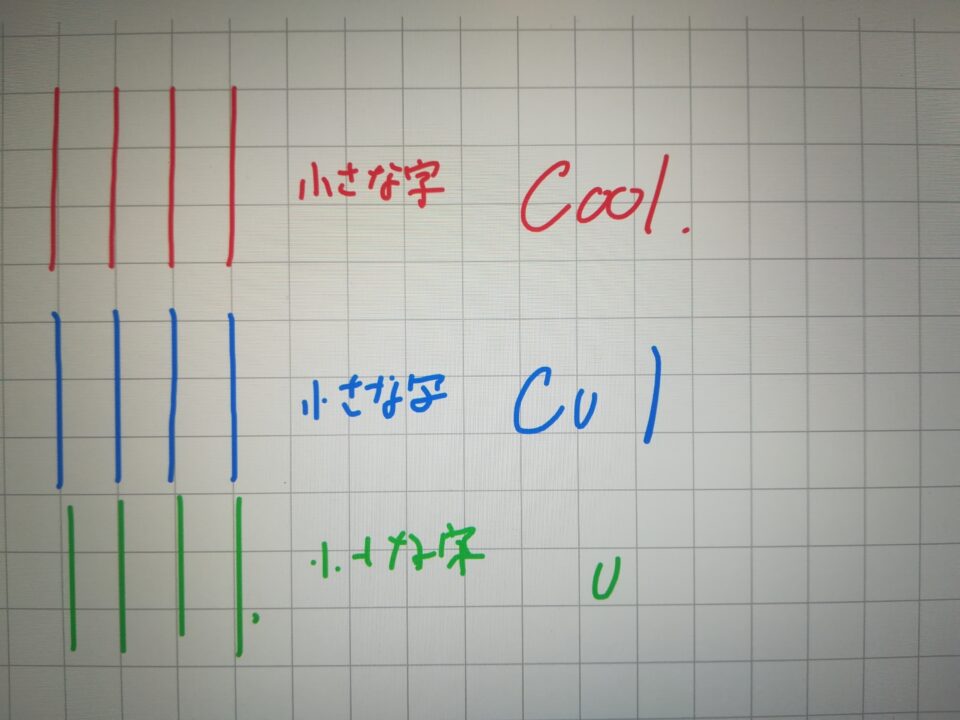 小さな字 Cool.
小さな字 Cu l
小さな字 U